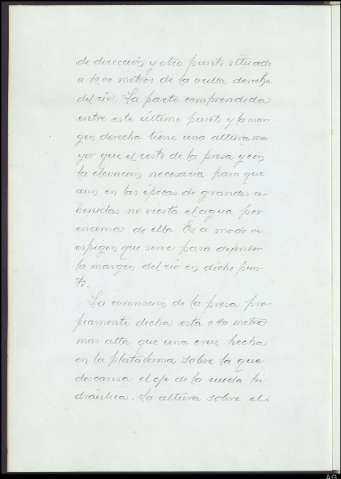 de dirección y otro punto situado
a 12,00 metros de la orilla derecha
del río. La parte comprendida
entre este último punto y la mar-
gen derecha tiene una altura ma-
yor que el resto de la presa y con
la elevación necesaria para que
aun en las épocas de grandes a-
venidas no vierta el agua por
encima de ella. Es a modo de
espigón que sirve para defender
la margen del río en dicho pun-
to.
La coronación de la presa pro-
piamente dicha está 0,40 metros
más alta que una cruz hecha
en la plataforma sobre la que
descansa el eje de la rueda hi-
dráulica. La altura sobre el
AG